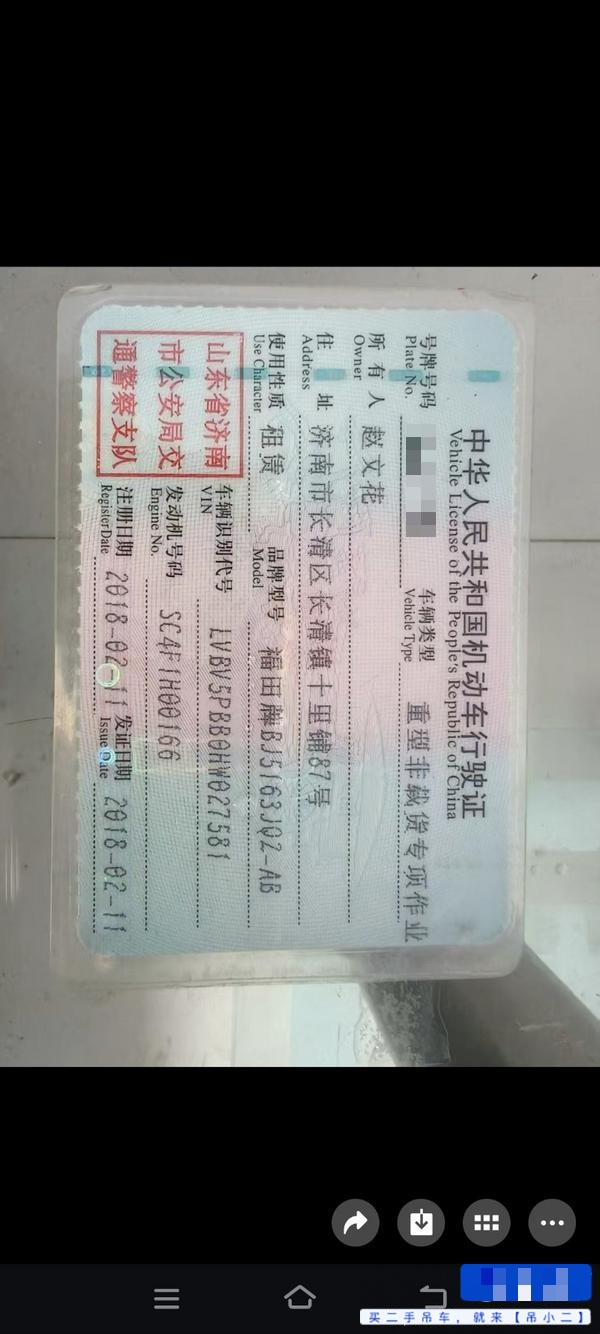 中华人民共和国机动车行驶证
Vehicle License of the People's Republic of China
号牌号码
Plate No.
车辆类型 重型非载货专项作业
Vehicle Type
所有人 赵文花
Owner
住址 济南市长清区长清镇十里铺87号
Address
使用性质 租赁
Use Character
品牌型号 福田牌BJ5163JQZ-AB
Model
山东省济南
市公安局交
通警察支队
车辆识别代号 LVBV5PBB0HW027581
VIN
发动机号码 SC4F1H00166
Engine No.
注册日期 2018-02-11
Register Date
发证日期 2018-02-11
Issue Date
买二手吊车，就来【吊小二】